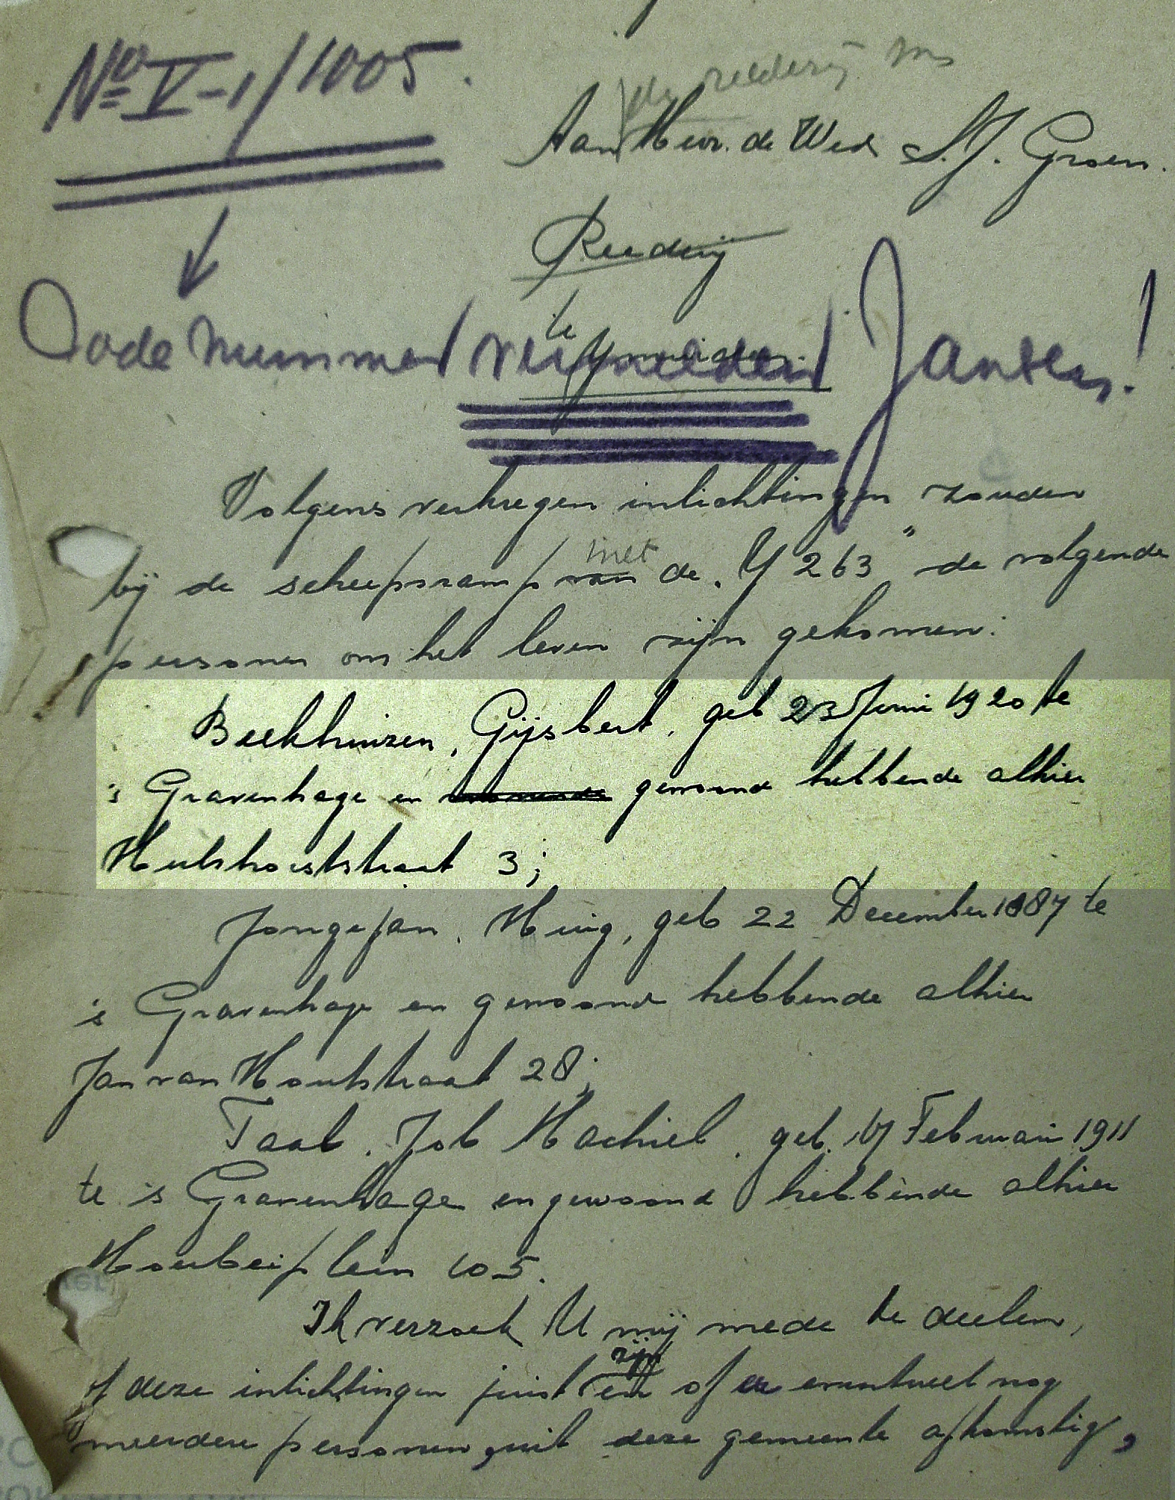 No V-1/1005.
de reederij Ms
Aan Mevr. de Wed. S.J. Groen.
Reederij
te
Ymuiden.
Oode nummer vermelden Jansen!
Volgens verkregen inlichtingen zouden
met
bij de scheepsramp van de "Y 263" de volgende
personen om het leven zijn gekomen:
Beekhuizen, Gijsbert, geb 23 Juni 1920 te
's Gravenhage en gewoond hebbende alhier
Hulshorststraat 3;
Jongejan, Huig, geb 22 December 1887 te
's Gravenhage en gewoond hebbende alhier
Jan van Houtstraat 28;
Taal, Job Machiel, geb. 17 Februari 1911
te 's Gravenhage en gewoond hebbende alhier
Houbeiplein 105.
Ik verzoek U mij mede te deelen,
zijn
of deze inlichtingen juist en of er eventueel nog
meerdere personen, uit deze gemeente afkomstig,